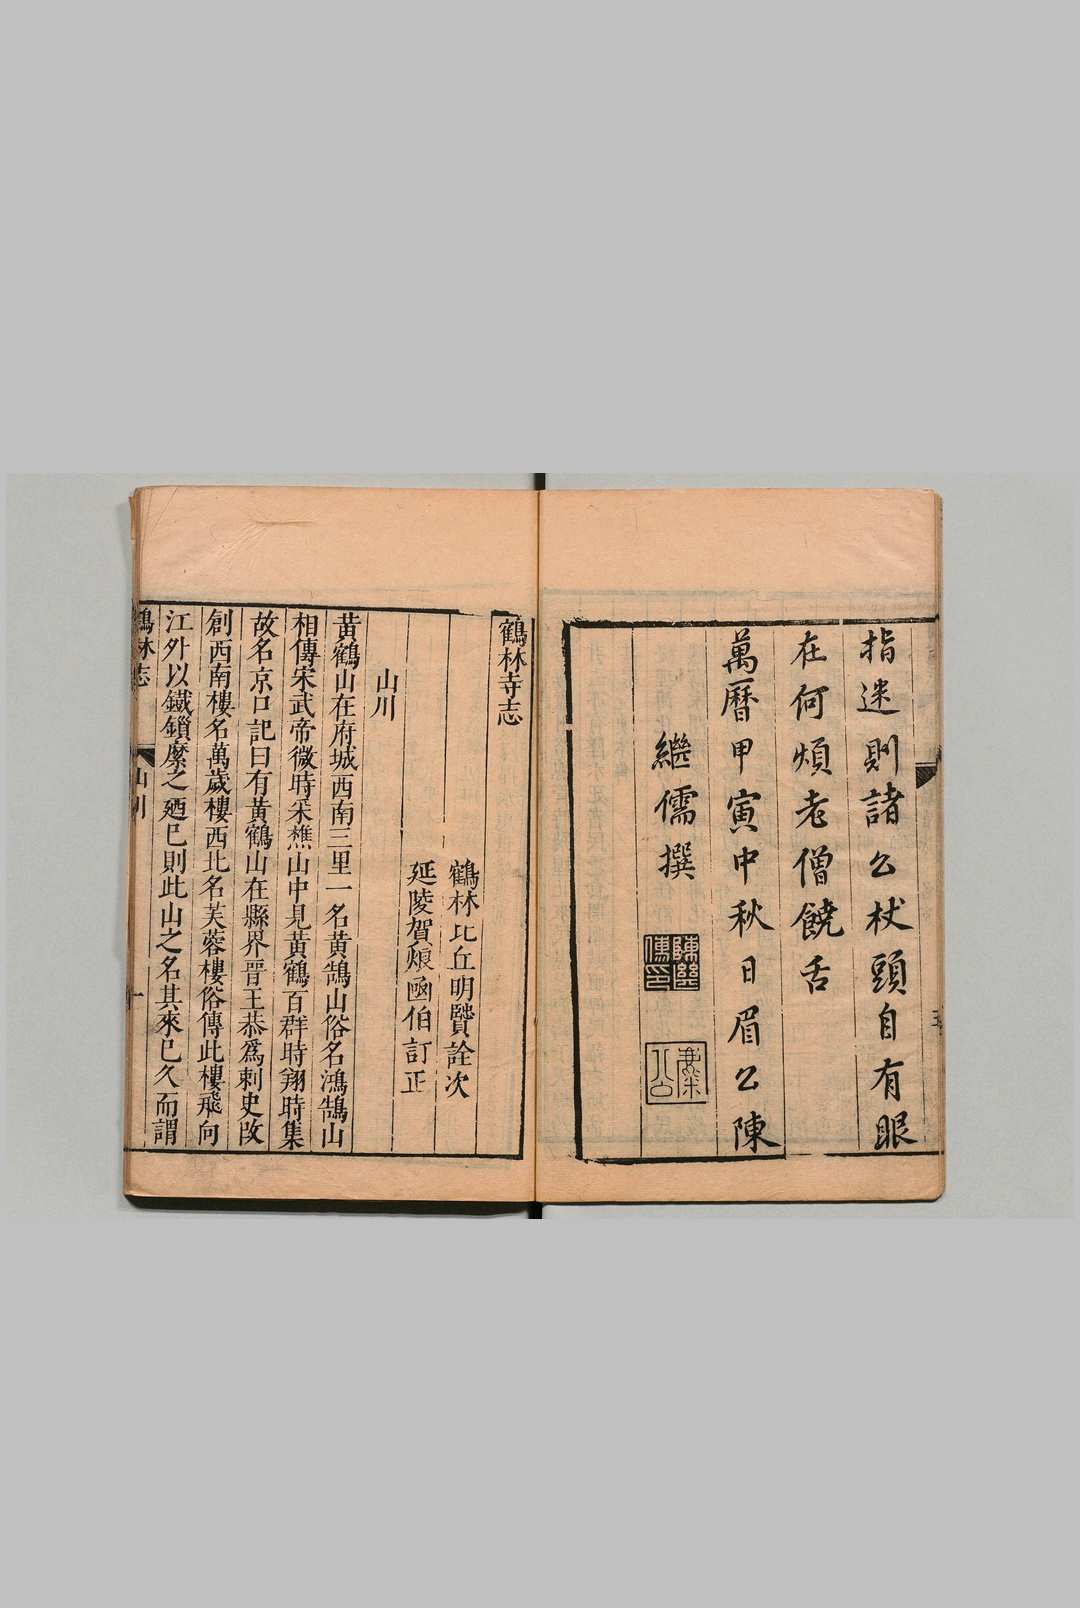 指迷則諸公杖頭自有眼
在何煩老僧饒舌
萬曆甲寅中秋日眉公陳
繼儒撰
鶴林寺志
鶴林比丘明賢詮次
延陵賀烺函伯訂正
山川
黃鶴山在府城西南三里一名黃鵠山俗名鴻鵠山
相傳宋武帝微時采樵山中見黃鶴百群時翔時集
故名京口記曰有黃鶴山在縣界晉王恭爲刺史改
創西南樓名萬歲樓西北名芙蓉樓俗傳此樓飛向
江外以鐵鎖縻之廼已則此山之名其來已久而謂
鶴林志 山川 一